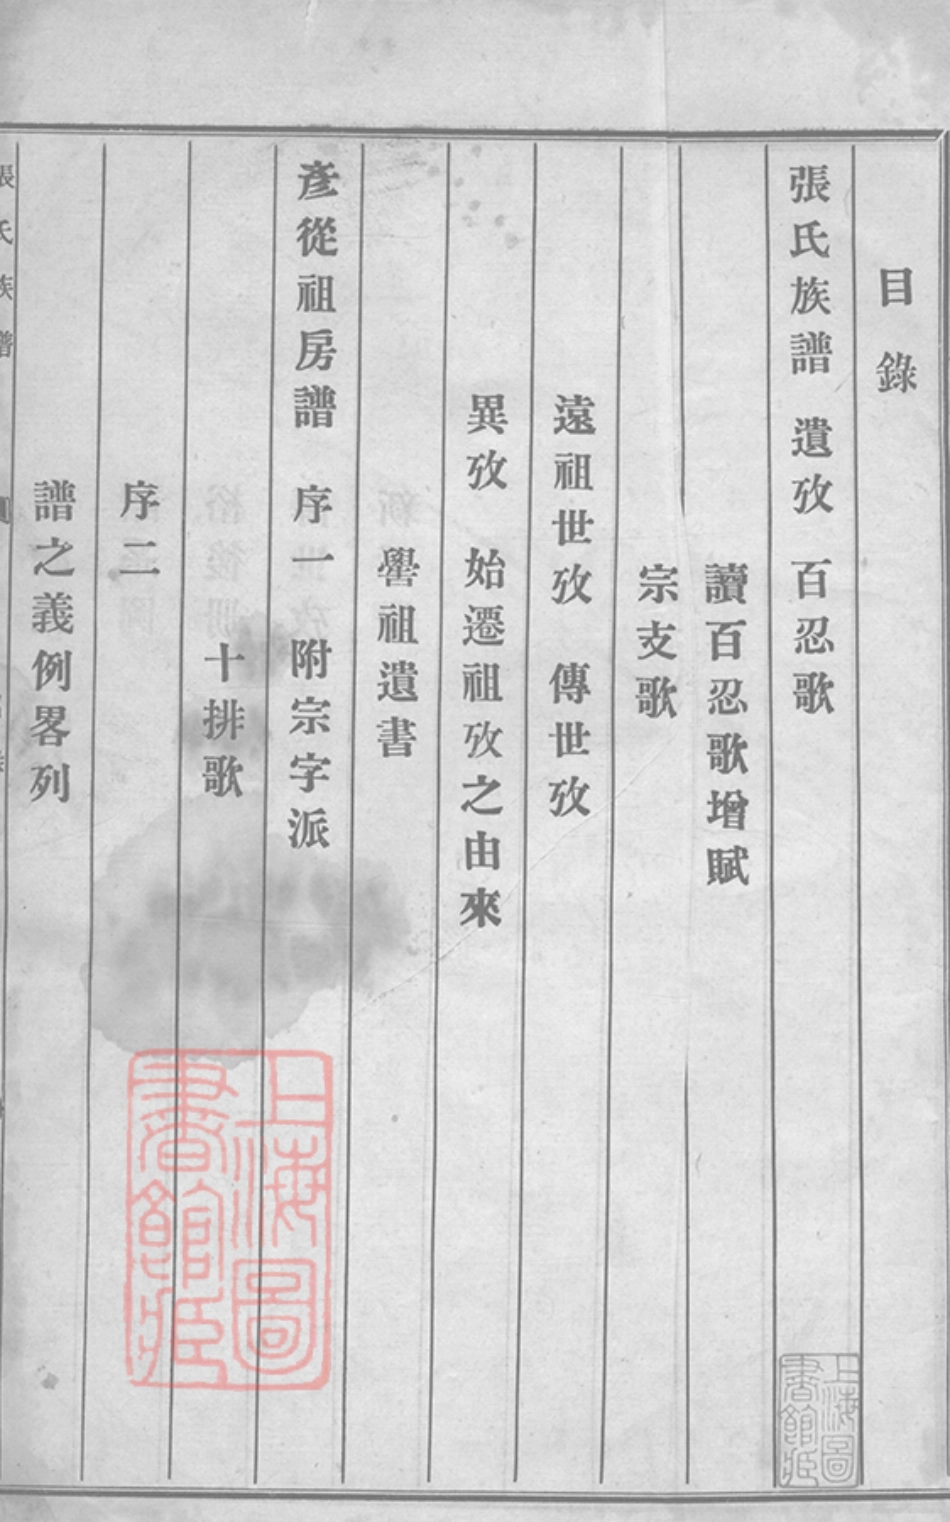 目錄
張氏族譜 遺攷 百忍歌
讀百忍歌增賦
宗支歌
遠祖世攷 傳世攷
異攷 始遷祖攷之由來
譽祖遺書
彥從祖房譜 序一 附宗字派
十排歌
序二
譜之義例畧列
張氏族譜
上海圖書館藏
上海圖書館藏